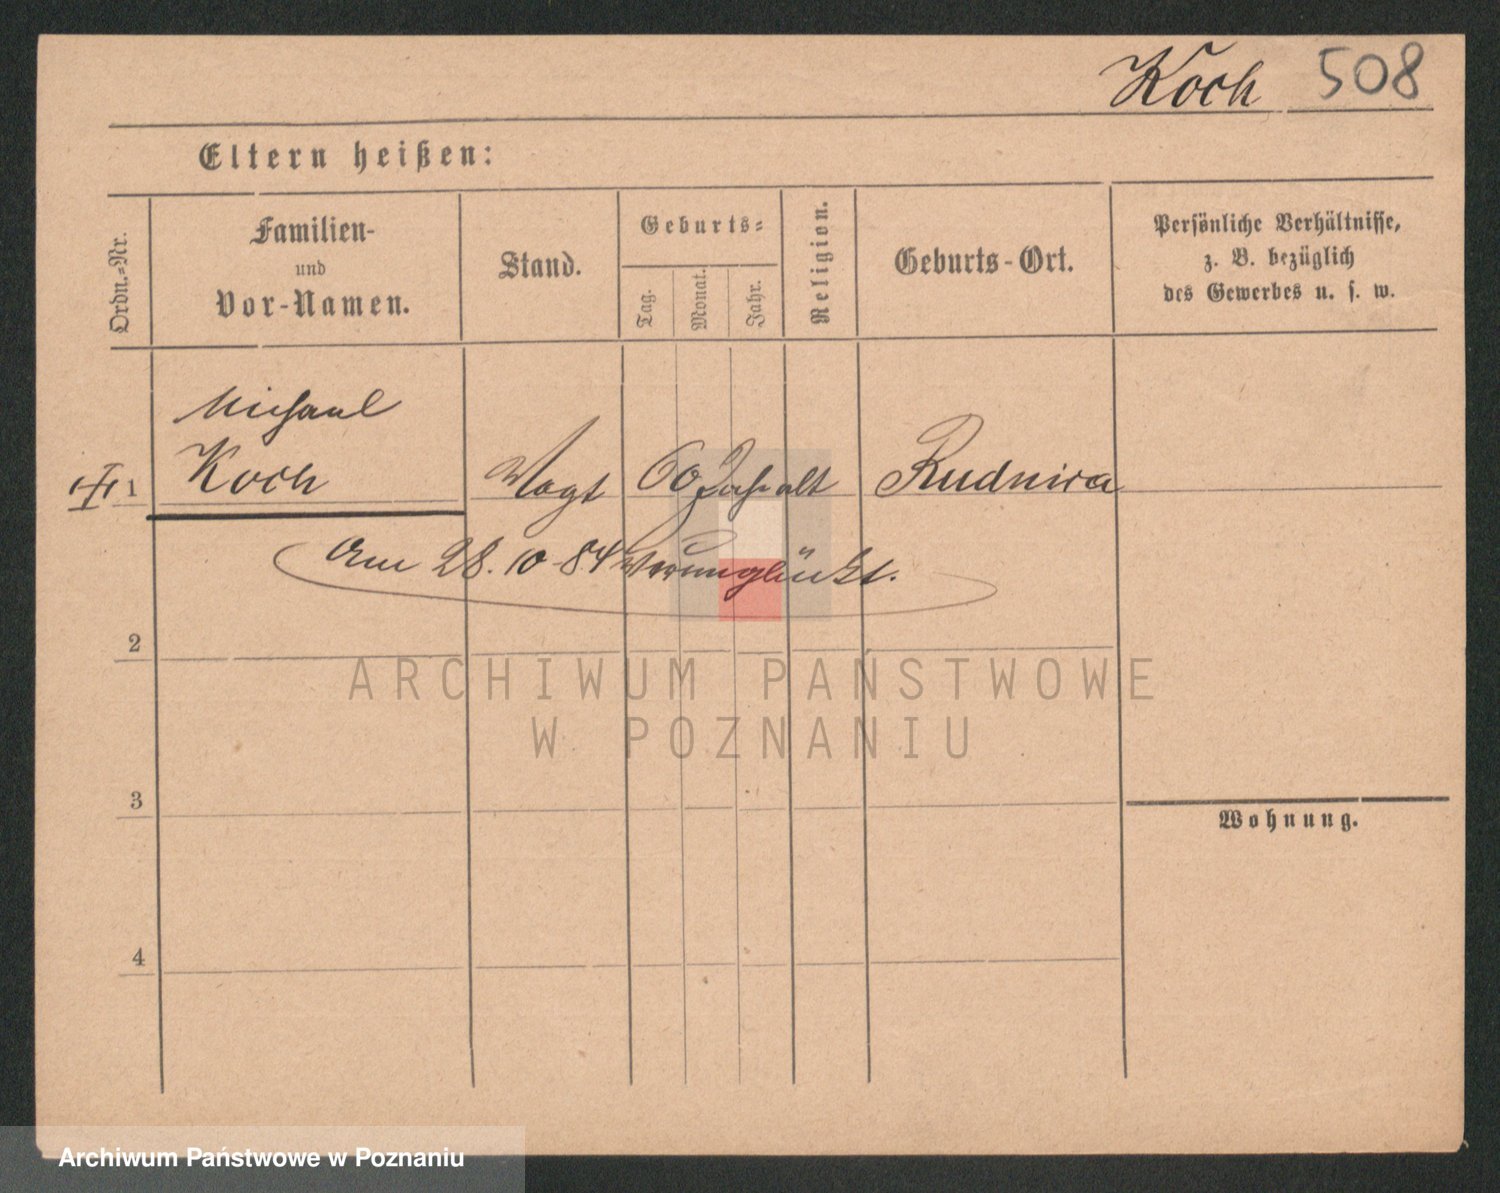 Koch 508
Eltern heißen:
Ordn.=Nr.
Familien-
und
Vor-Namen.
Stand.
Geburts=
Tag.
Monat.
Jahr.
Religion.
Geburts-Ort.
Persönliche Verhältnisse,
z. B. bezüglich
des Gewerbes u. s. w.
Michael
1 Koch Vogt 60 Jahr alt Rudnica
Am 28.10.84 verunglückt.
2
ARCHIWUM PAŃSTWOWE
W POZNANIU
3
Wohnung.
4
Archiwum Państwowe w Poznaniu